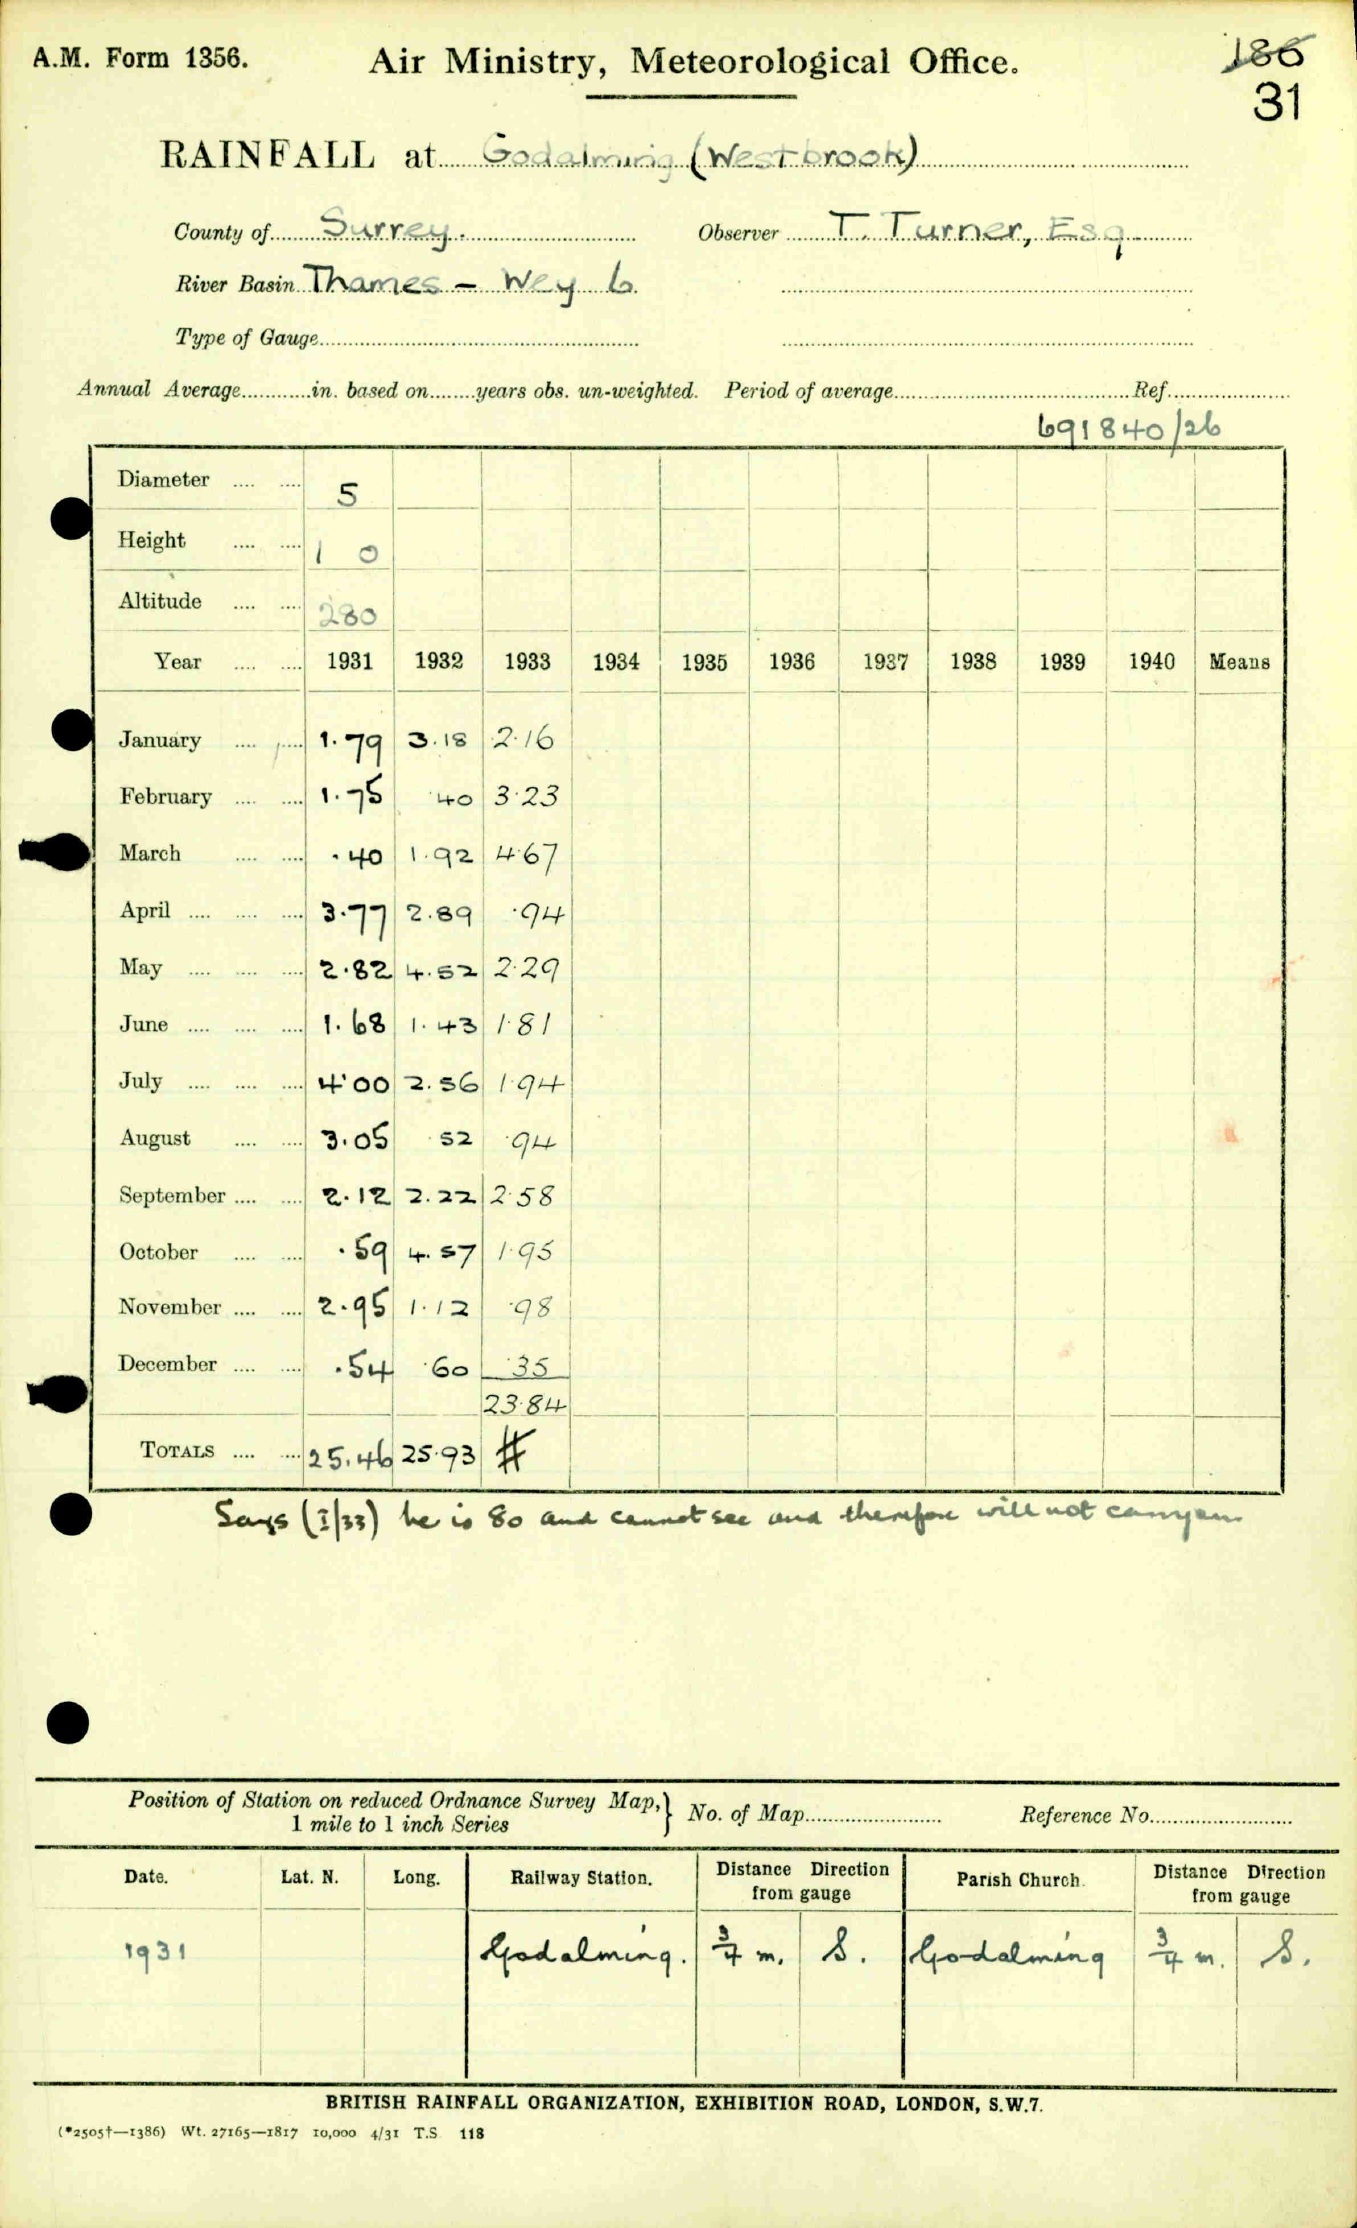 A.M. Form 1356. Air Ministry, Meteorological Office. 186
31
RAINFALL at Godalming (Westbrook)
County of Surrey. Observer T. Turner, Esq.
River Basin Thames - Wey 6
Type of Gauge
Annual Average in. based on years obs. un-weighted. Period of average Ref.
691840/26
Diameter 5
Height 1 0
Altitude 280
Year 1931 1932 1933 1934 1935 1936 1937 1938 1939 1940 Means
January 1.79 3.18 2.16
February 1.75 .40 3.23
March .40 1.92 4.67
April 3.77 2.89 .94
May 2.82 4.52 2.29
June 1.68 1.43 1.81
July 4.00 2.56 1.94
August 3.05 .52 .94
September 2.12 2.22 2.58
October .59 4.57 1.95
November 2.95 1.12 .98
December .54 .60 .35
23.84
TOTALS 25.46 25.93 #
Says (I/33) he is 80 and cannot see and therefore will not carry on
Position of Station on reduced Ordnance Survey Map, } No. of Map Reference No.
1 mile to 1 inch Series
Date. Lat. N. Long. Railway Station. Distance Direction from gauge Parish Church. Distance Direction from gauge
1931 Godalming. 3/4 m. S. Godalming 3/4 m. S.
BRITISH RAINFALL ORGANIZATION, EXHIBITION ROAD, LONDON, S.W.7.
(*2505†—1386) Wt. 27165—1817 10,000 4/31 T.S. 118